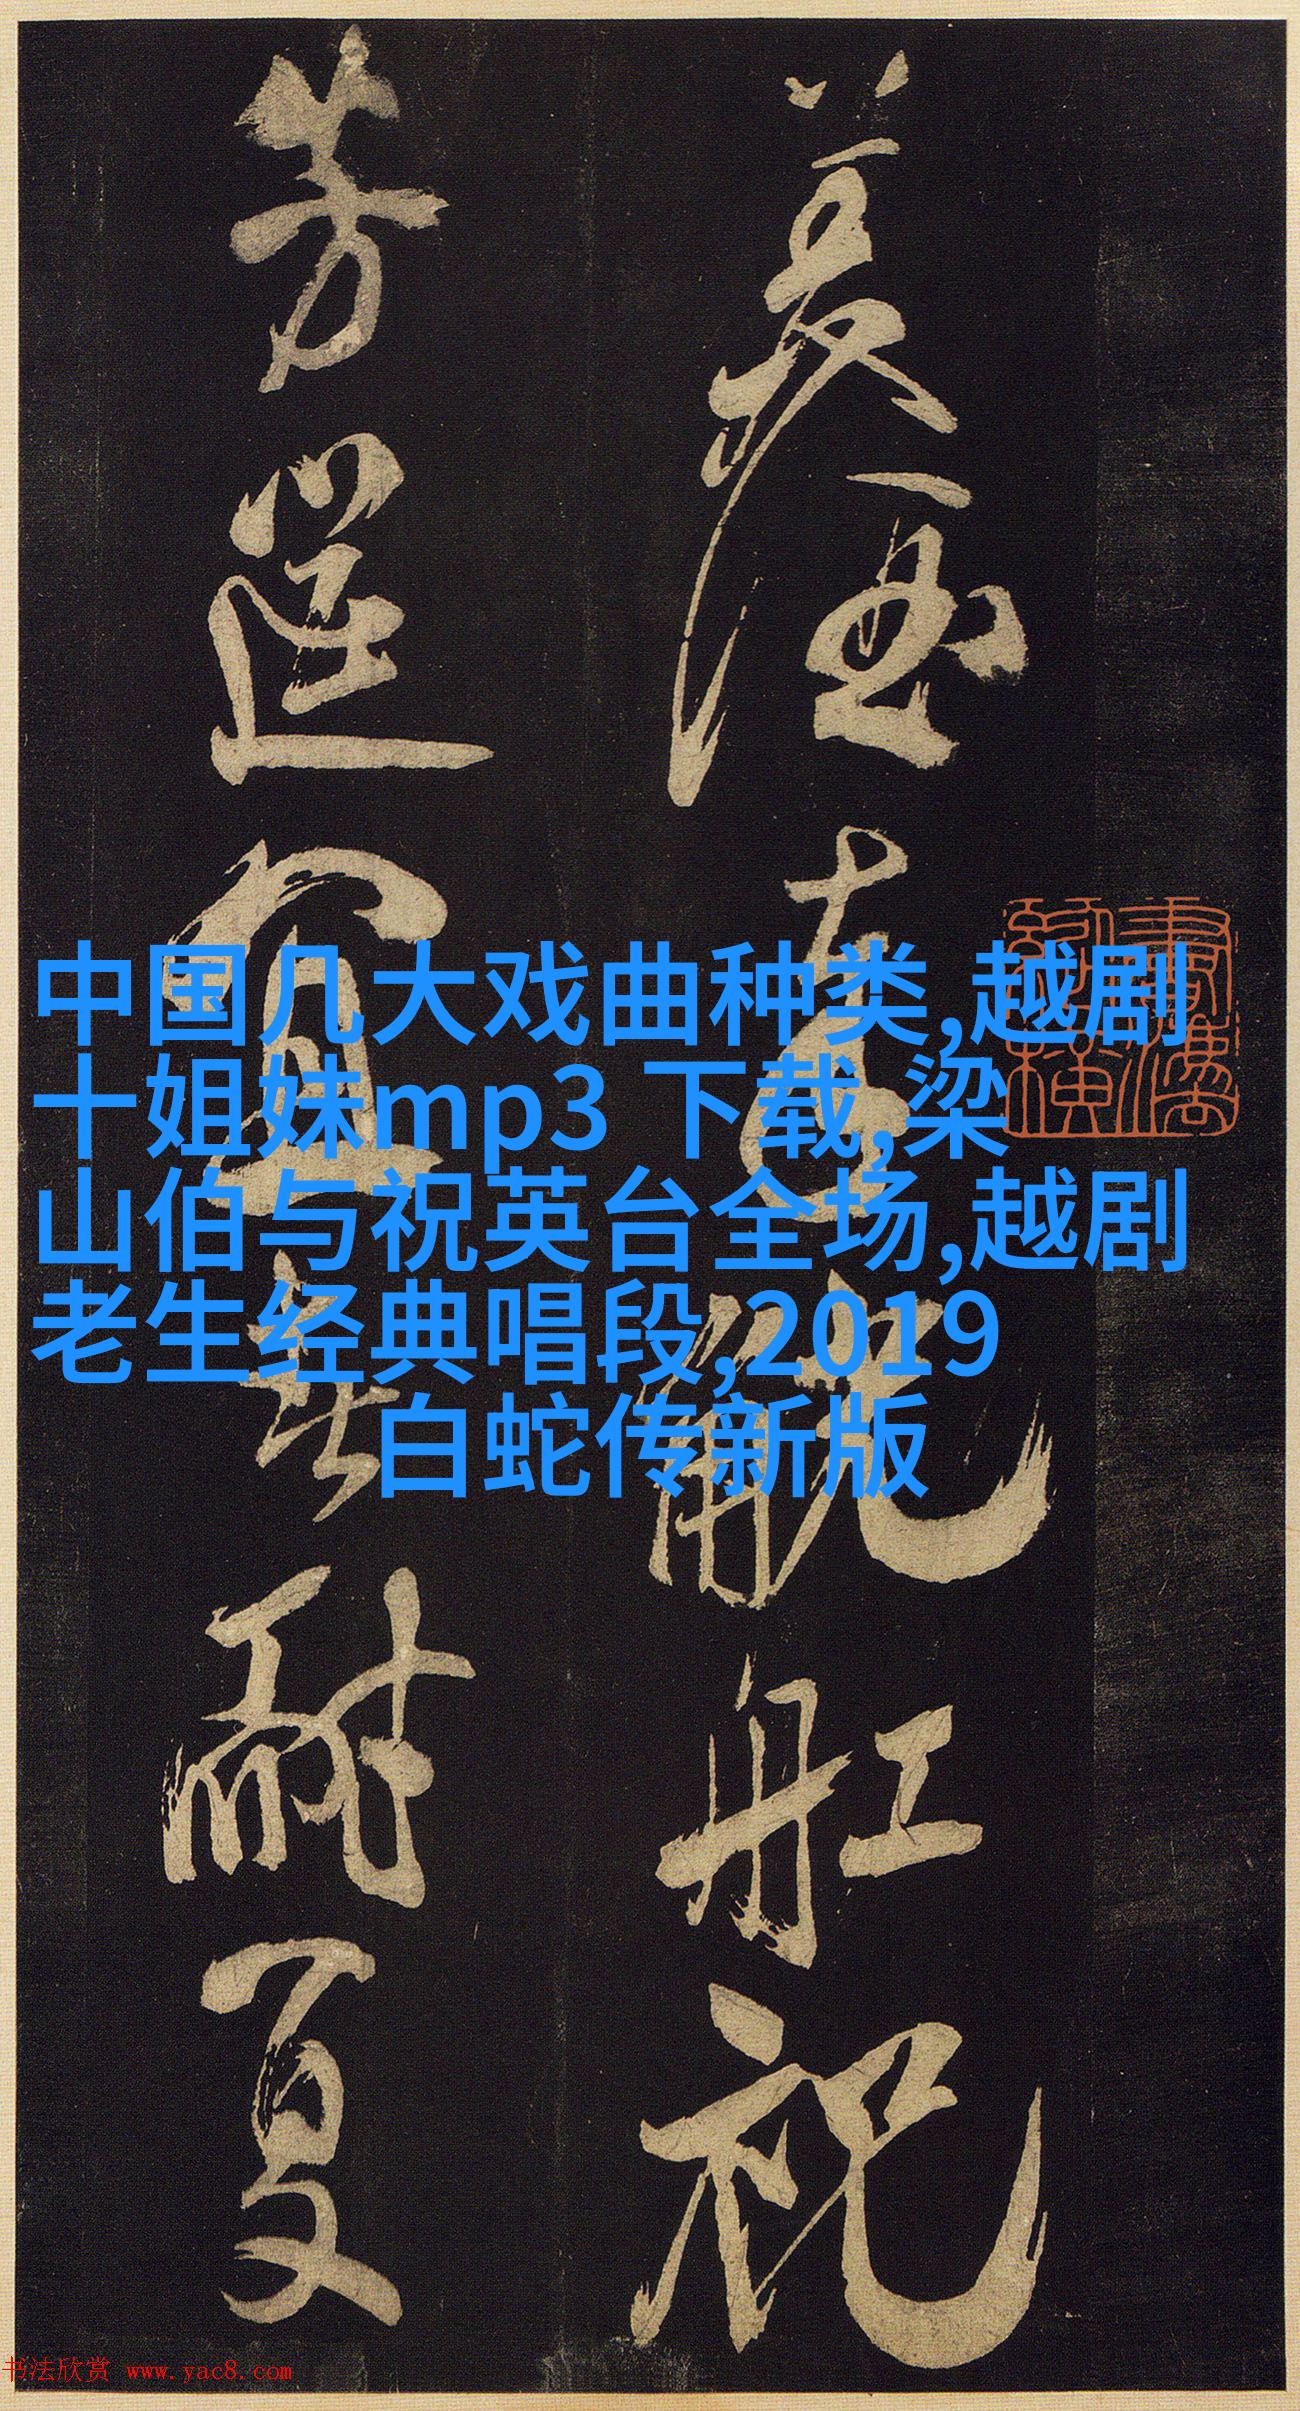 美酒 觥舡祝
芳筵宜 耐夏
中国几大戏曲种类,越剧
十姐妹mp3 下载,梁
山伯与祝英台全场,越剧
老生经典唱段,2019
白蛇传新版
书法欣赏 www.yac8.com